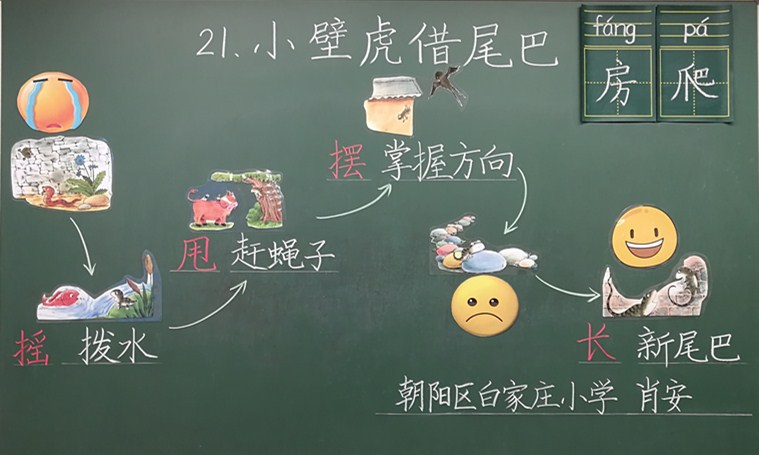 21、小壁虎借尾巴
fáng pá
房 爬
摆 掌握方向
甩 赶蝇子
摇 拨水
长 新尾巴
朝阳区白家庄小学 肖安